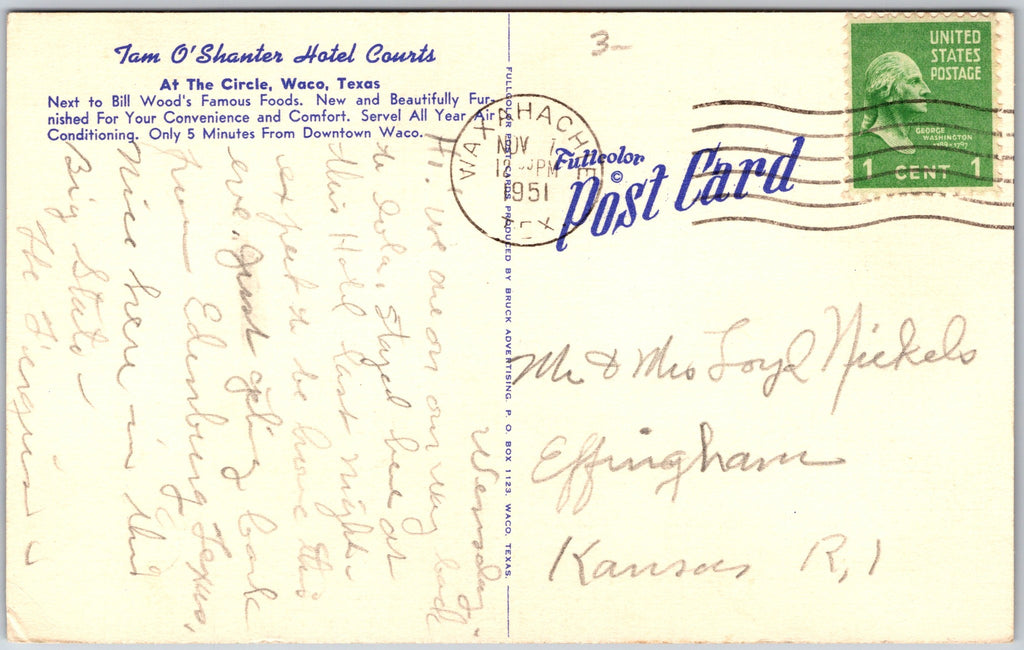 Tam O'Shanter Hotel Courts
At The Circle, Waco, Texas
Next to Bill Wood's Famous Foods. New and Beautifully Fur-
nished For Your Convenience and Comfort. Servel All Year Air
Conditioning. Only 5 Minutes From Downtown Waco.
Wensday.
Hi. We are on our way back
to Iola. Stayed here at
this Hotel last night.
expect to be home this
eve. Just getting back
from Edinburg Texas,
Nice here in this
Big State –
The
FULLCOLOR POST CARDS PRODUCED BY BRUCK ADVERTISING. P. O. BOX 1123, WACO, TEXAS.
3–
WAXAHACHIE
NOV 7
PM
1951
TEX
Fullcolor
©
Post Card
UNITED
STATES
POSTAGE
GEORGE
WASHINGTON
1789-1797
1 CENT 1
Mr & Mrs Loyd Nickels
Effingham
Kansas R, 1